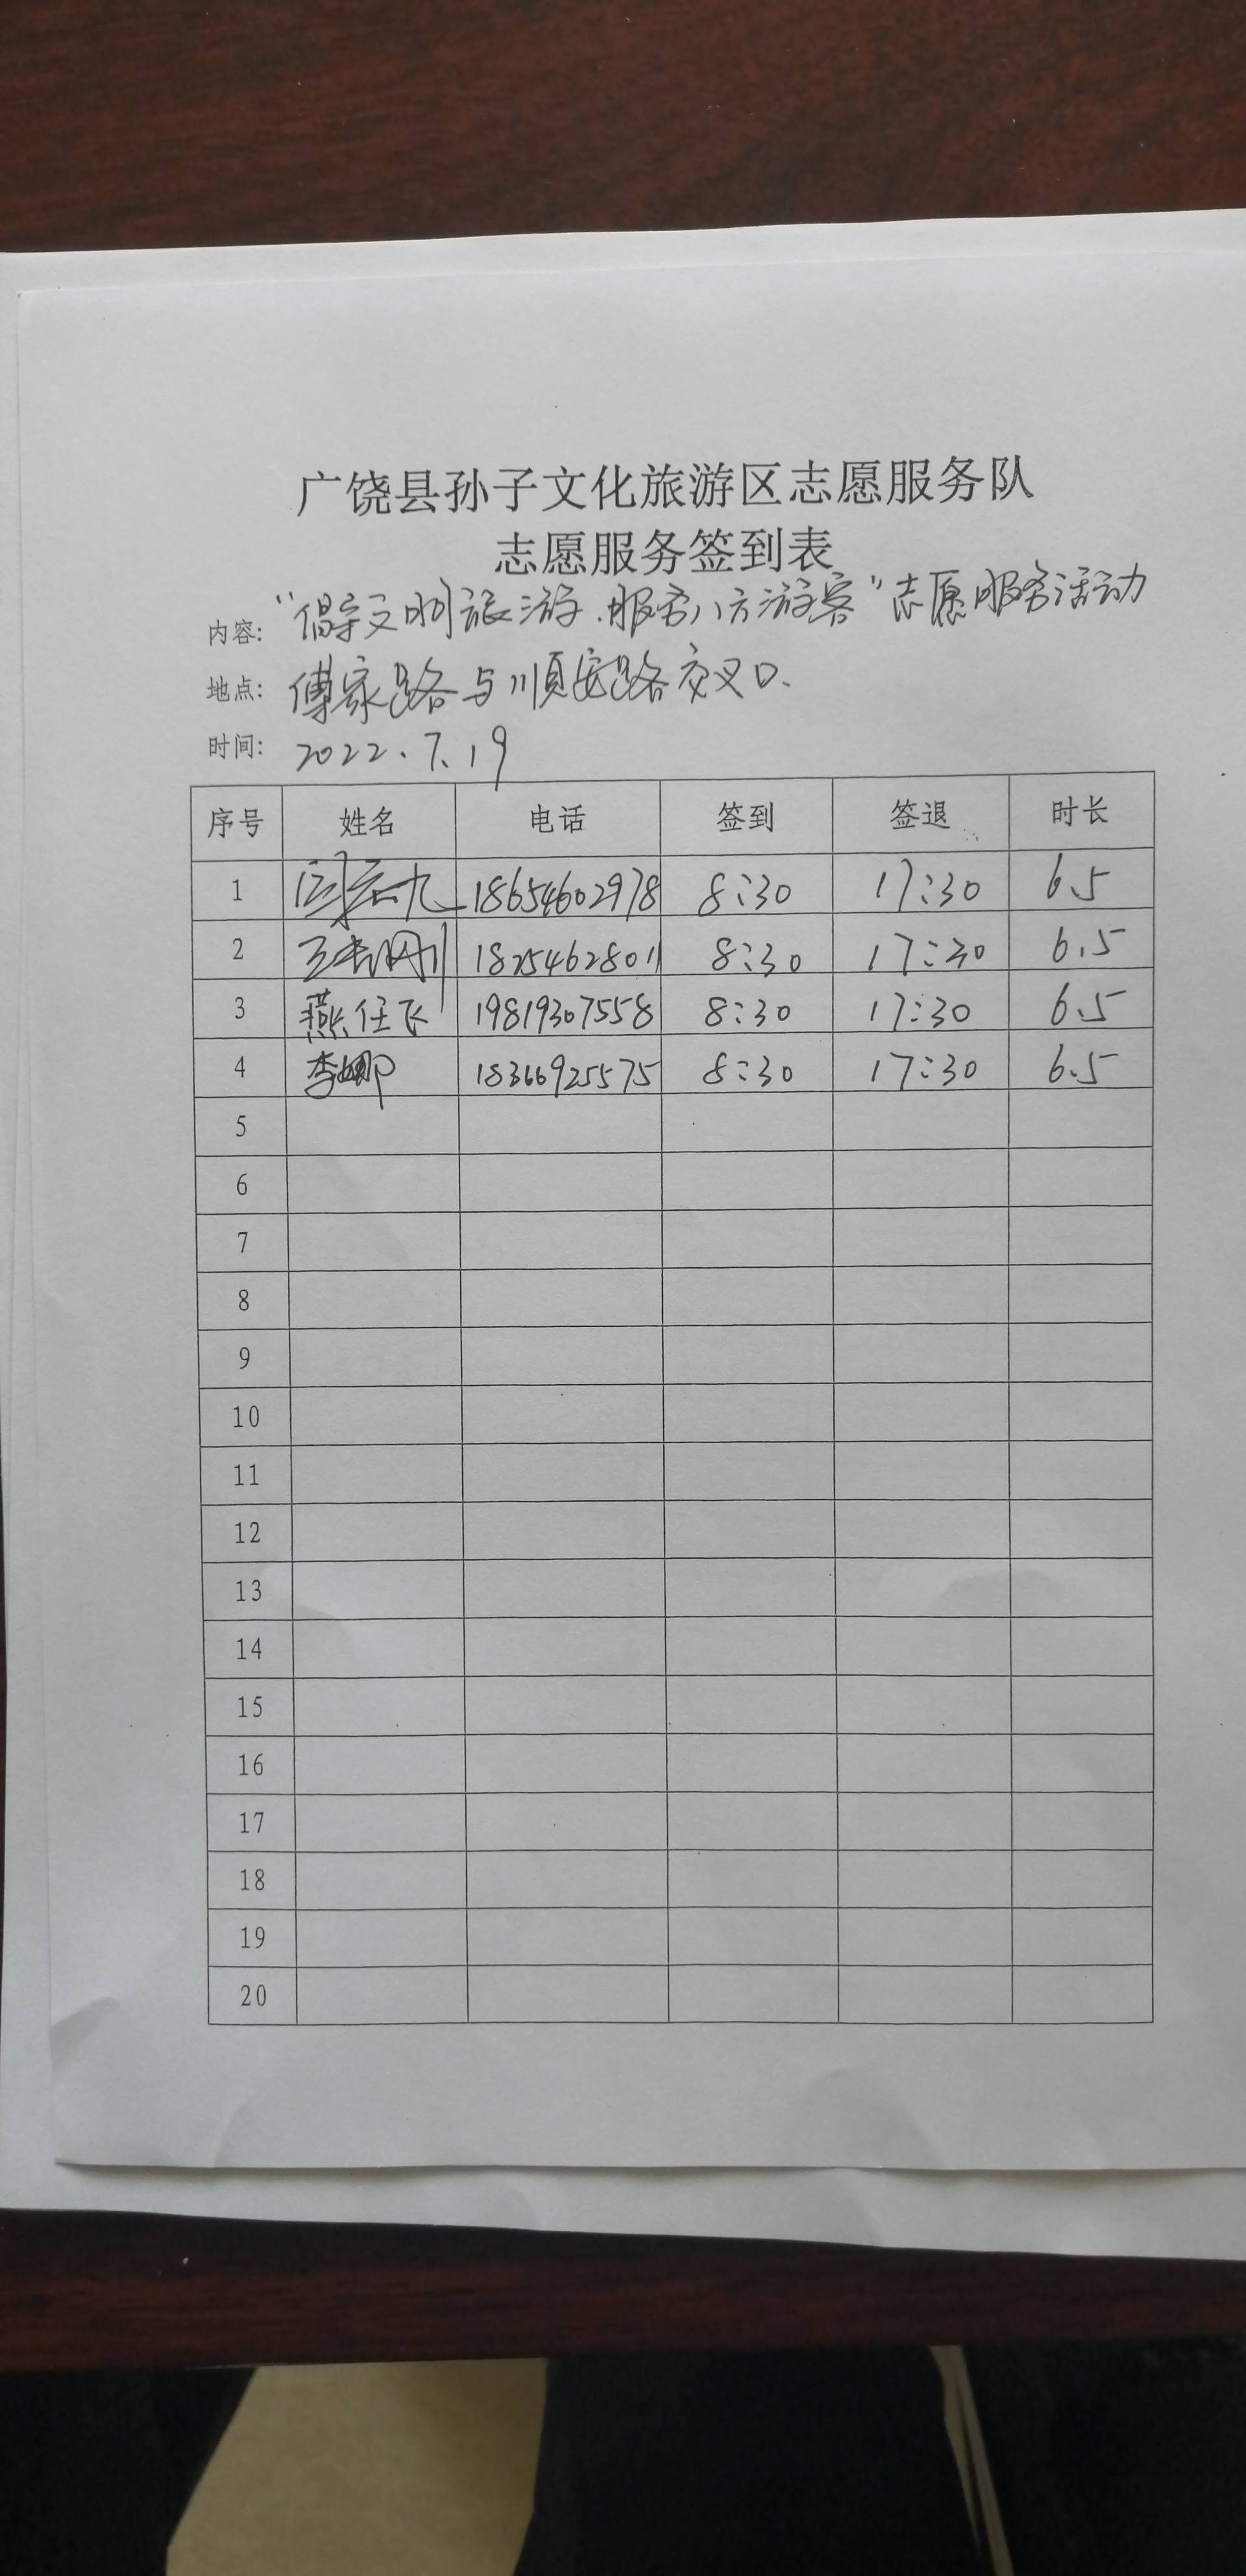 广饶县孙子文化旅游区志愿服务队
志愿服务签到表
内容: “倡导文明旅游.服务八方游客”志愿服务活动
地点: 傅家路与顺安路交叉口.
时间: 2022.7.19
序号 姓名 电话 签到 签退 时长
1 18654602978 8:30 17:30 6.5
2 18254628011 8:30 17:30 6.5
3 燕任飞 19819307558 8:30 17:30 6.5
4 李娜 18366925575 8:30 17:30 6.5
5
6
7
8
9
10
11
12
13
14
15
16
17
18
19
20